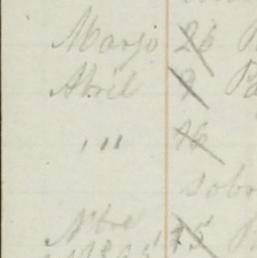 Março 26 P
Abril 9 Pa
" " 16
sobr
Nbre 15 P